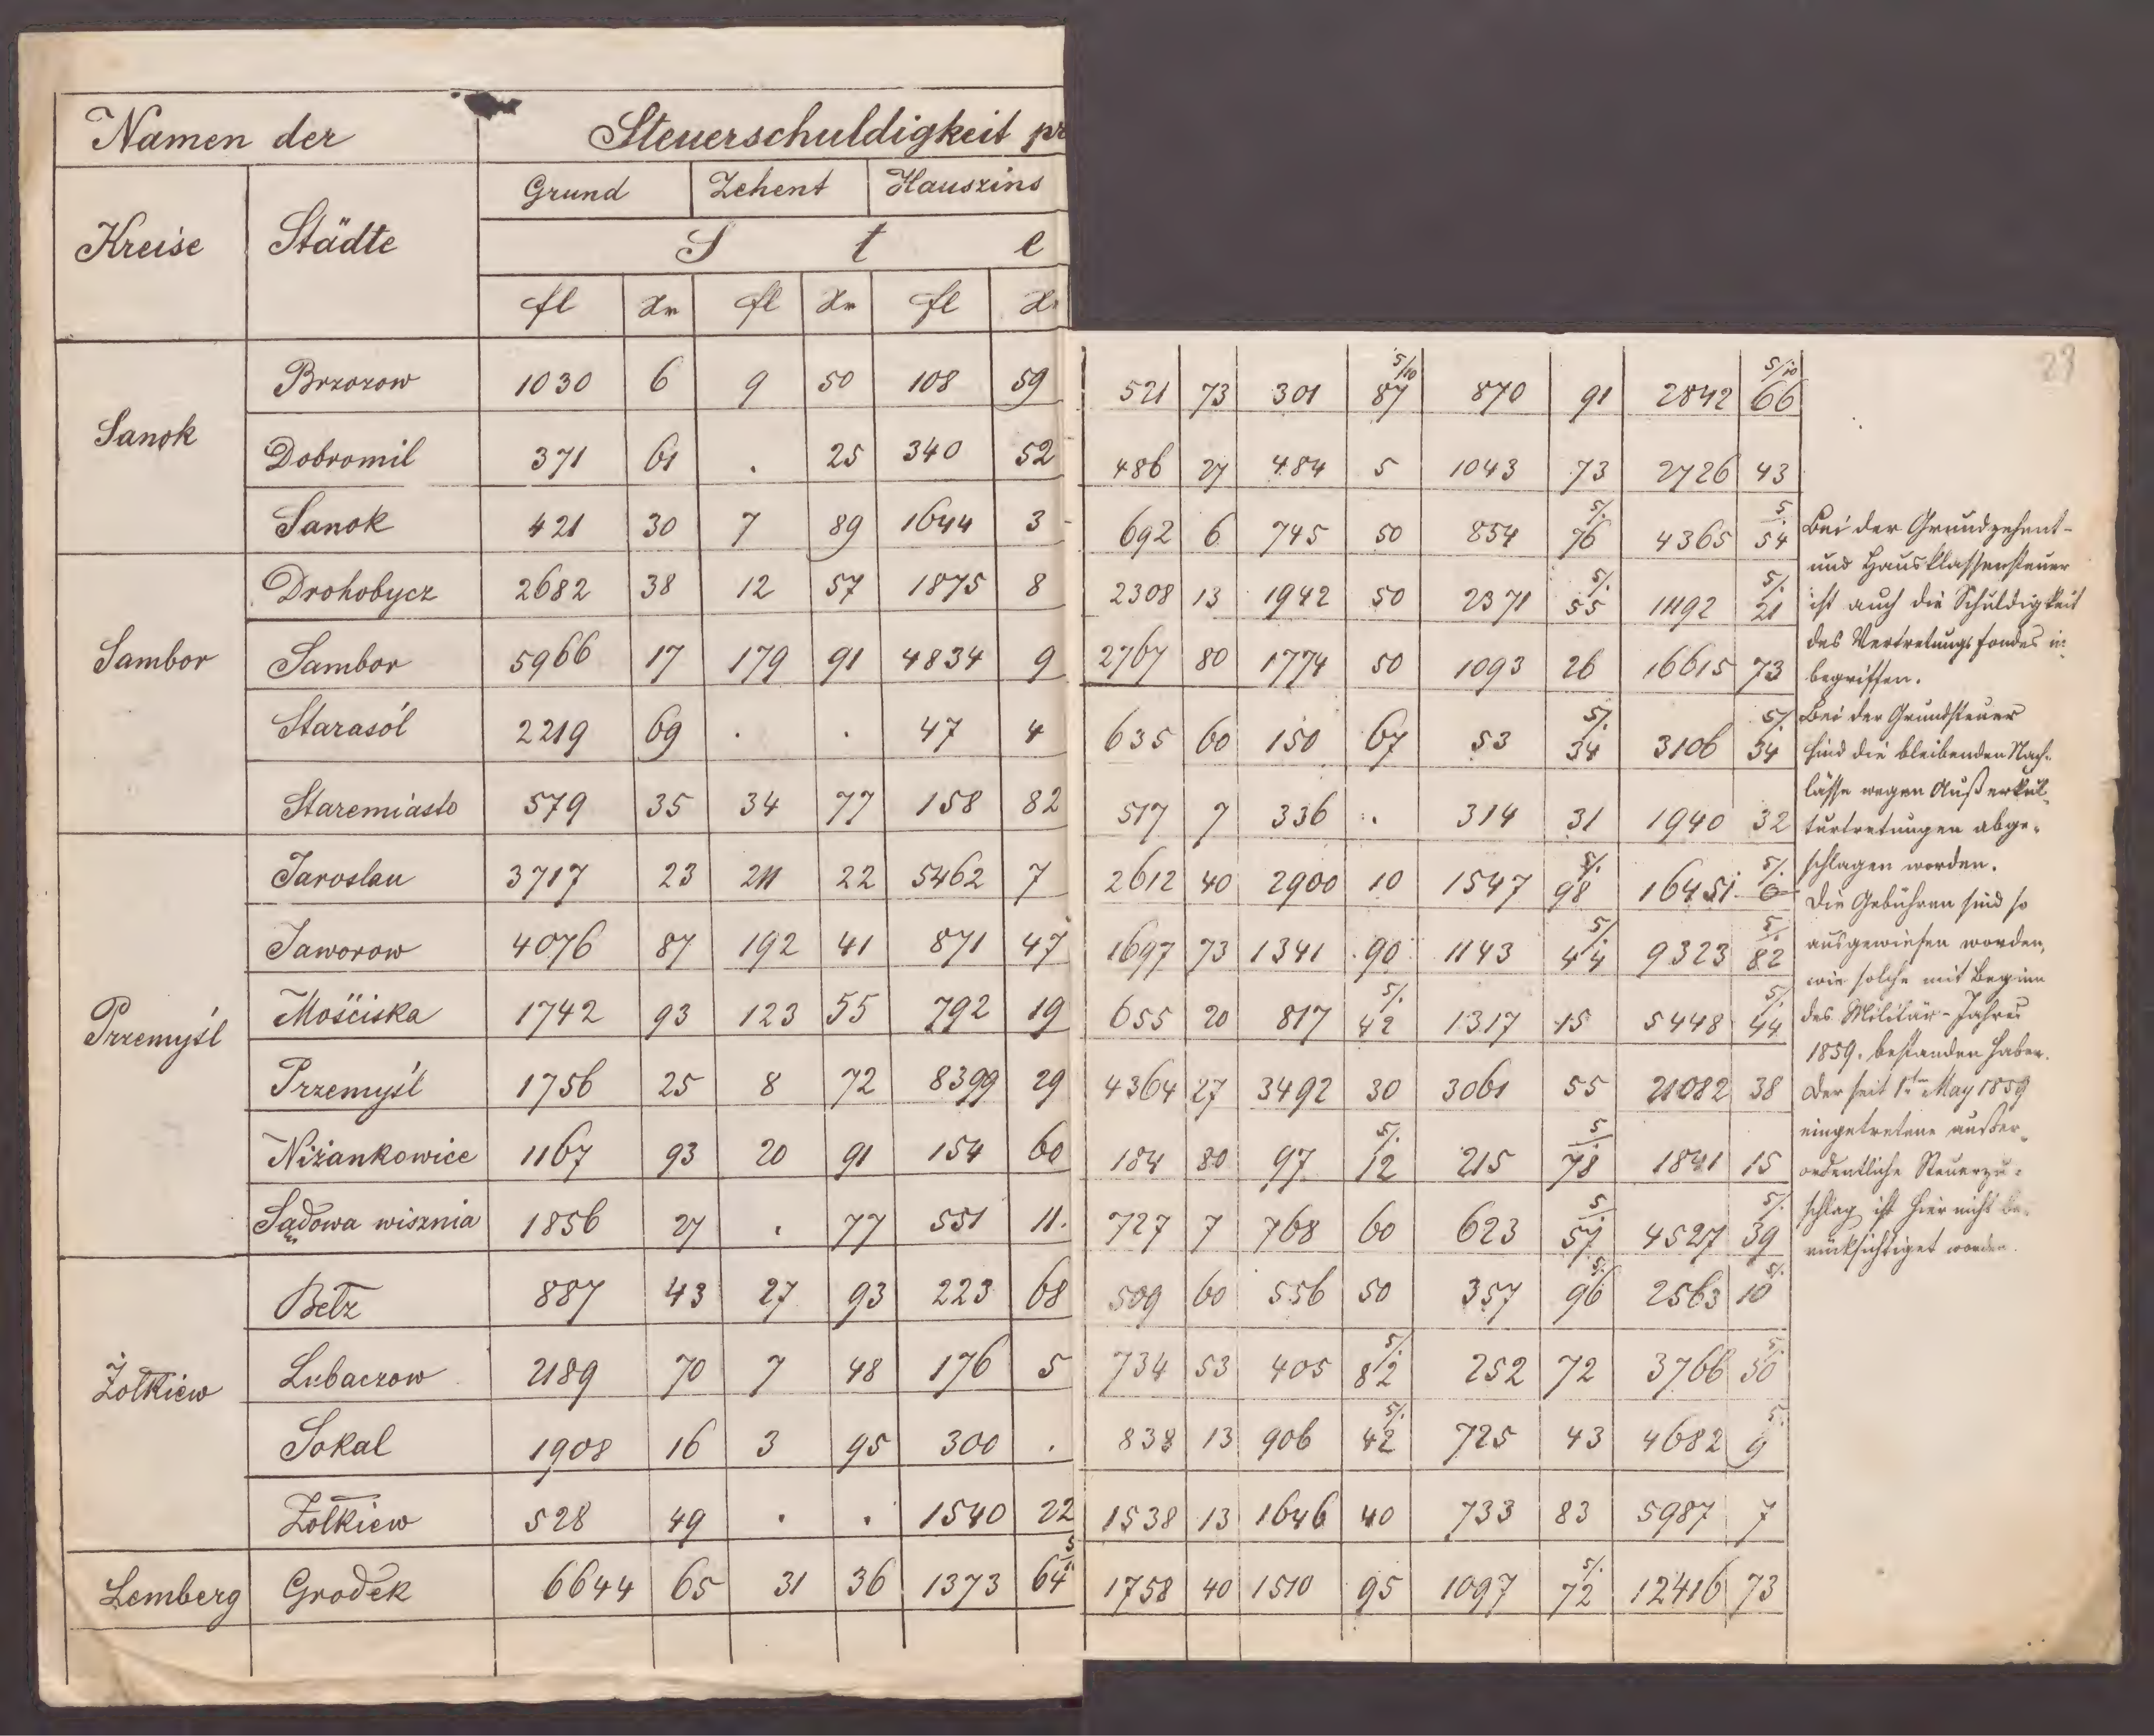 Namen der Steuerschuldigkeit pr
Kreise Städte Grund Zehent Hauszins
S t e
fl Xr fl Xr fl X
29
Sanok Brzozow 1030 6 9 50 108 59 521 73 301 87 5/10 870 91 2842 66 5/10
Dobromil 371 61 . 25 340 52 486 27 484 5 1043 73 2726 43
Sanok 421 30 7 89 1644 3 692 6 745 50 854 76 5/. 4365 54 5/.
Sambor Drohobycz 2682 38 12 57 1875 8 2308 13 1942 50 2371 55 5/. 11192 21 5/.
Sambor 5966 17 179 91 4834 9 2767 80 1774 50 1093 26 16615 73
Starasól 2219 69 . . 47 4 635 60 150 67 53 34 5/. 3106 34 5/.
Staremiasto 579 35 34 77 158 82 517 7 336 . 314 31 1940 32
Przemyśl Jaroslau 3717 23 211 22 5462 7 2612 40 2900 10 1547 98 5/. 16451 0 5/.
Jaworow 4076 87 192 41 871 47 1697 73 1341 90 1143 44 5/. 9323 82 5/.
Mościska 1742 93 123 55 792 19 655 20 817 42 5/. 1317 15 5448 44 5/.
Przemyśl 1756 25 8 72 8399 29 4364 27 3492 30 3061 55 21082 38
Niżankowice 1167 93 20 91 154 60 184 80 97 12 5/. 215 78 5/. 1841 15
Sądowa wisznia 1856 27 . 77 551 11. 727 7 768 60 623 57 5/. 4527 39 5/.
Żołkiew Bełz 887 43 27 93 223 68 509 60 556 50 357 96 5/. 2563 10 5/.
Lubaczow 2189 70 7 48 176 5 734 53 405 82 5/. 252 72 3766 30 5/.
Sokal 1908 16 3 95 300 . 838 13 906 42 5/. 725 43 4682 9 5/.
Żołkiew 528 49 . . 1540 22 1538 13 1646 40 733 83 5987 7
Lemberg Grodek 6644 65 31 36 1373 64 5/. 1758 40 1510 95 1097 72 5/. 12416 73
Bei der Grundzehent-
und Hausklassensteuer
ist auch die Schuldigkeit
des Vertretungsfondes in-
begriffen.
Bei der Grundsteuer
sind die bleibenden Nach-
lässe wegen Außerkul-
turtretungen abge-
schlagen worden.
Die Gebühren sind so
ausgewiesen worden,
wie solche mit Beginn
des Militär-Jahres
1859. bestanden haben.
Der seit 1ten May 1859
eingetretene außer-
ordentliche Steuerzu-
schlag ist hier nicht be-
rücksichtiget worden.